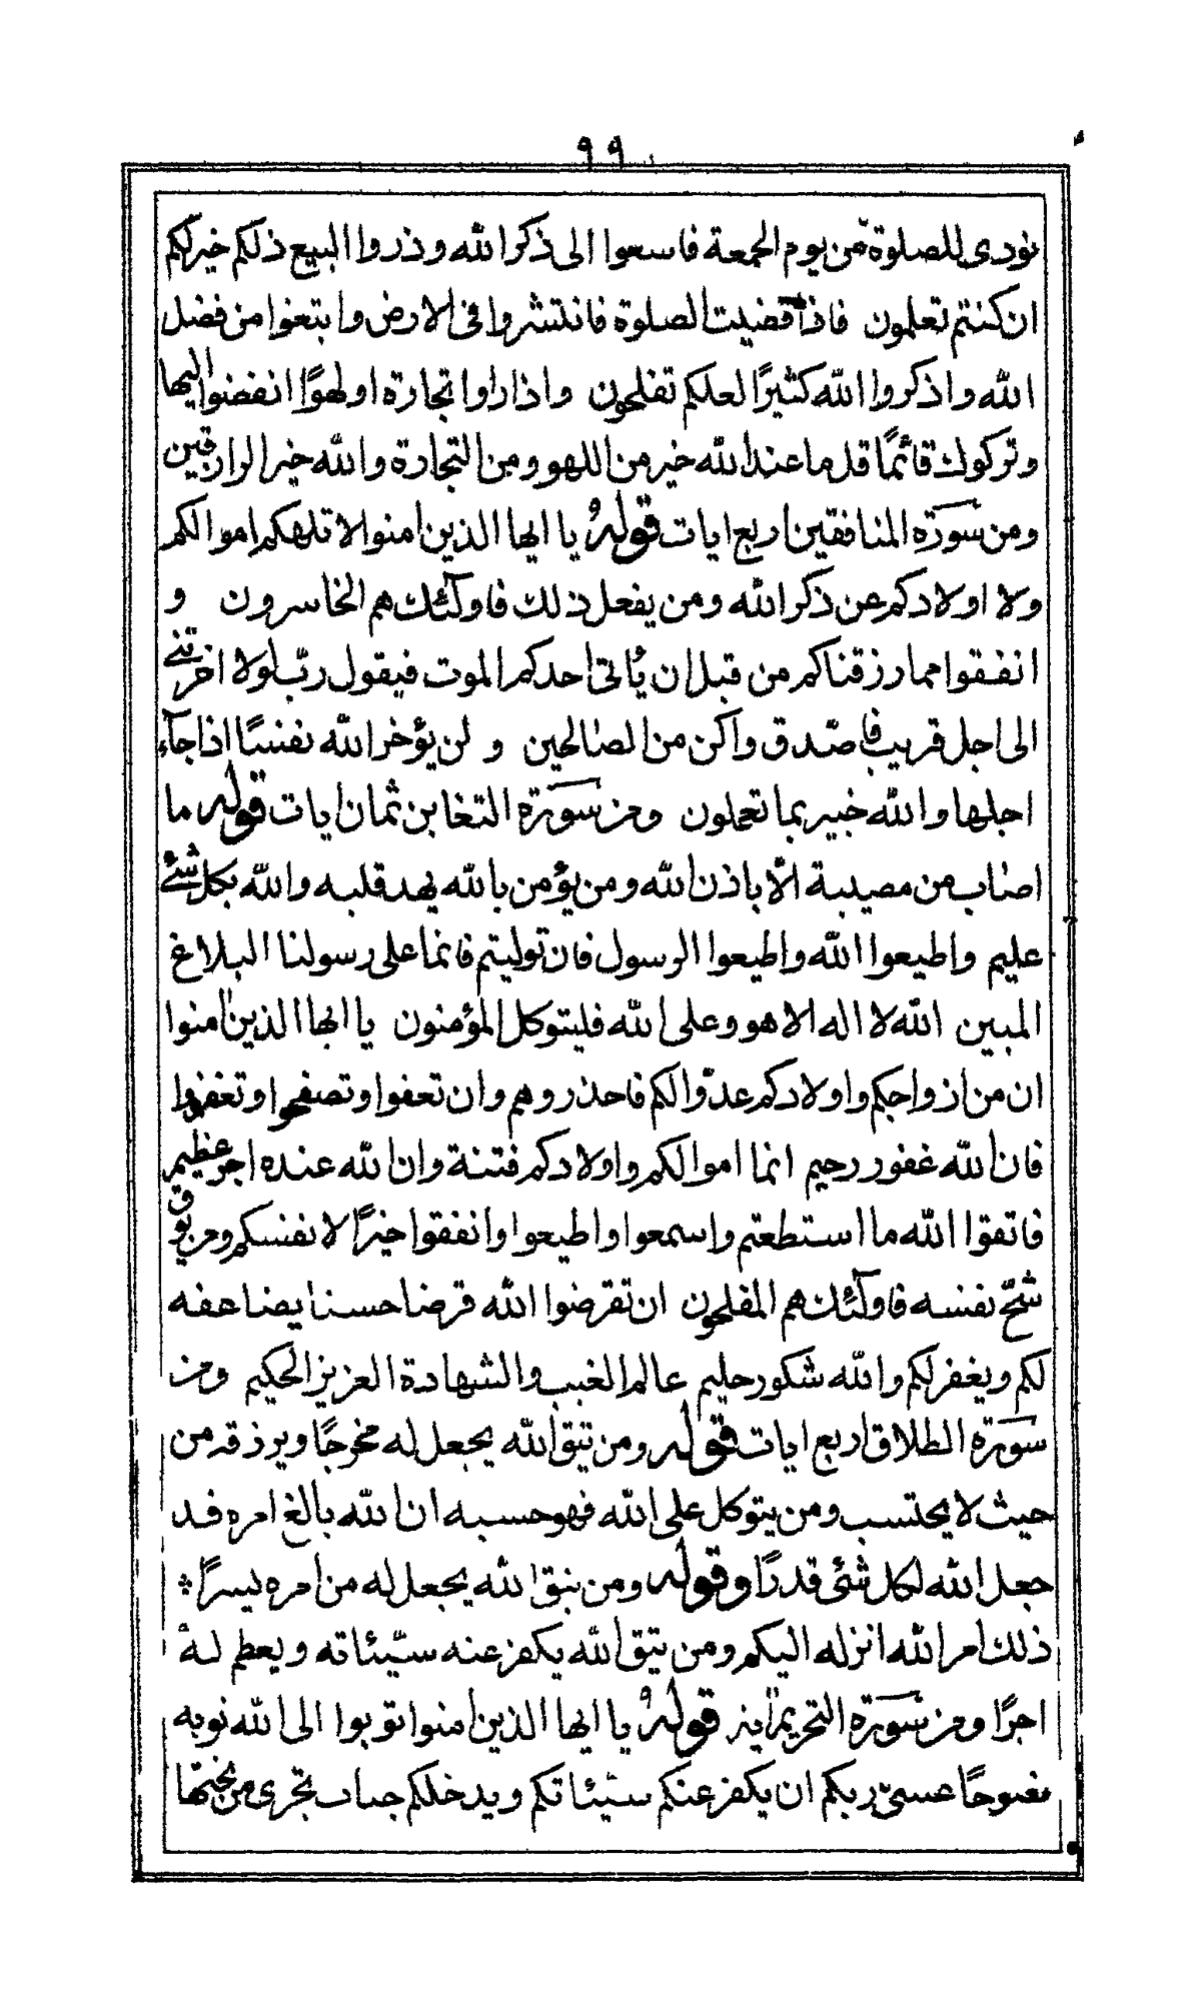 ٩٩
نودى للصلوة من يوم الجمعة فاسعوا الى ذكر الله وذروا البيع ذلكم خير لكم
ان كنتم تعلمون فاذا قضيت الصلوة فانتشروا فى الارض وابتغوا من فضل
الله واذكروا الله كثيرًا لعلكم تفلحون واذا راوا تجارة او لهوًا انفضوا اليها
وتركوك قائمًا قل ما عند الله خير من اللهو ومن التجارة والله خير الرازقين
ومن سورة المنافقين اربع ايات قوله يا ايها الذين امنوا لا تلهكم اموالكم
ولا اولادكم عن ذكر الله ومن يفعل ذلك فاولٓئك هم الخاسرون و
انفقوا مما رزقناكم من قبل ان يأتى احدكم الموت فيقول ربّ لولا اخرتنى
الى اجل قريب فاصّدق واكن من الصالحين و لن يؤخر الله نفسًا اذا جآء
اجلها والله خبير بما تعملون ومن سورة التغابن ثمان ايات قوله ما
اصاب من مصيبة الّا باذن الله ومن يؤمن بالله يهد قلبه والله بكل شئ
عليم واطيعوا الله واطيعوا الرسول فان توليتم فانما على رسولنا البلاغ
المبين الله لا اله الا هو وعلى الله فليتوكل المؤمنون يا ايها الذين امنوا
ان من ازواجكم واولادكم عدوّا لكم فاحذروهم وان تعفوا وتصفحوا وتغفروا
فان الله غفور رحيم انما اموالكم واولادكم فتنة وان الله عنده اجر عظيم
فاتقوا الله ما استطعتم واسمعوا واطيعوا وانفقوا خيرًا لانفسكم ومن يوق
شحّ نفسه فاولٓئك هم المفلحون ان تقرضوا الله قرضا حسنا يضاعفه
لكم ويغفر لكم والله شكور حليم عالم الغيب والشهادة العزيز الحكيم ومن
سورة الطلاق اربع ايات قوله ومن يتق الله يجعل له مخرجًا ويرزقه من
حيث لا يحتسب ومن يتوكل على الله فهو حسبه ان الله بالغ امره قد
جعل الله لكل شئ قدرًا وقوله ومن يتق الله يجعل له من امره يسرًا
ذلك امر الله انزله اليكم ومن يتق الله يكفر عنه سيّئاته ويعظم له
اجرًا ومن سورة التحريم اية قوله يا ايها الذين امنوا توبوا الى الله توبة
نصوحًا عسى ربكم ان يكفر عنكم سيّئاتكم ويدخلكم جنات تجرى من تحتها